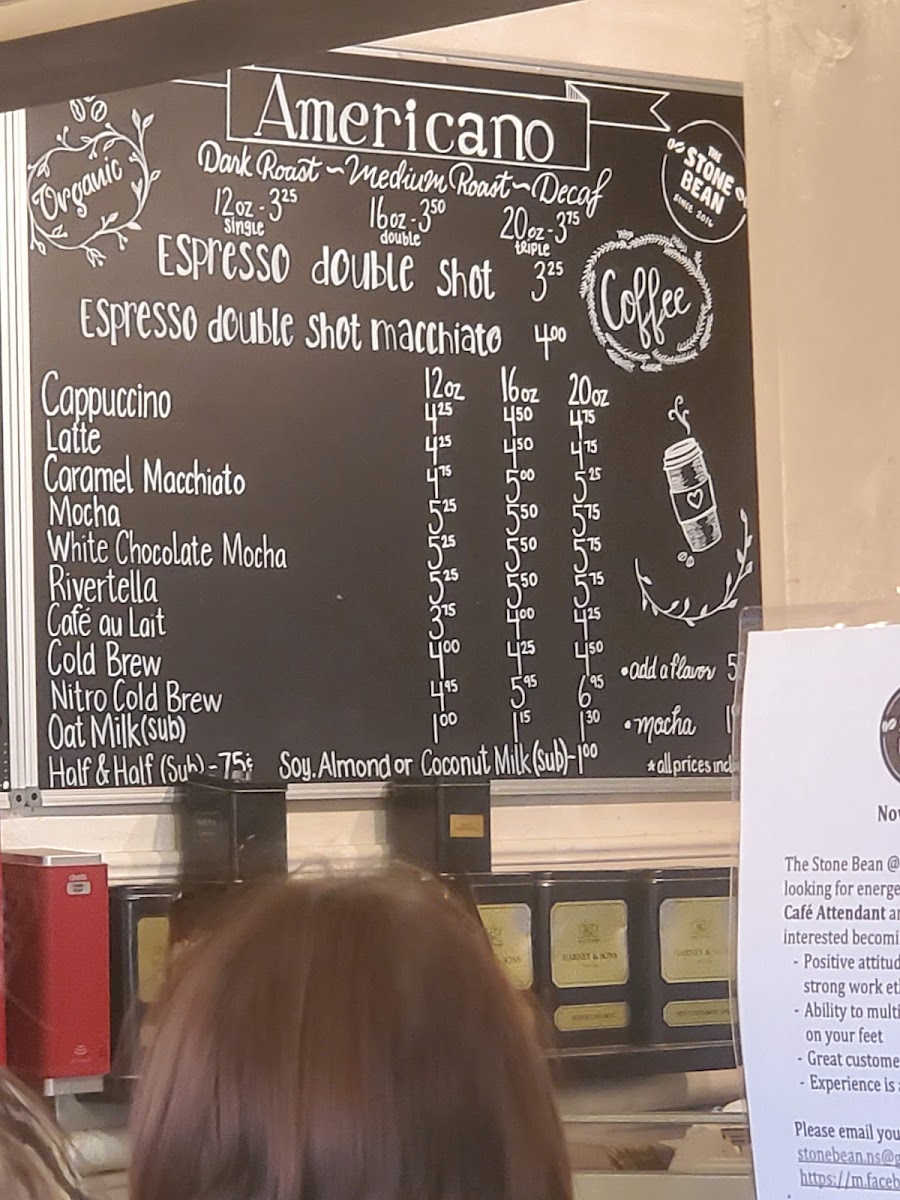 Americano
Organic
THE
STONE
BEAN
SINCE 2016
Dark Roast ~ Medium Roast ~ Decaf
12oz - 3.25 16oz - 3.50 20oz - 3.75
single double triple
Espresso double shot 3.25
Coffee
Espresso double shot macchiato 4.00
12oz 16oz 20oz
Cappuccino 4.25 4.50 4.75
Latte 4.25 4.50 4.75
Caramel Macchiato 4.75 5.00 5.25
Mocha 5.25 5.50 5.75
White Chocolate Mocha 5.25 5.50 5.75
Rivertella 5.25 5.50 5.75
Café au Lait 3.75 4.00 4.25
Cold Brew 4.00 4.25 4.50
Nitro Cold Brew 4.95 5.95 6.95
Oat Milk (sub) 1.00 1.15 1.30
Half & Half (Sub) - 75¢ Soy, Almond or Coconut Milk (Sub) - 1.00
• add a flavor 5
• mocha 1
* all prices incl
HARNEY & SONS
HARNEY &
Nov
The Stone Bean @
looking for energe
Café Attendant an
interested becomi
- Positive attitud
strong work et
- Ability to multi
on your feet
- Great custome
- Experience is a
Please email you
stonebean.ns@g
https://m.faceb